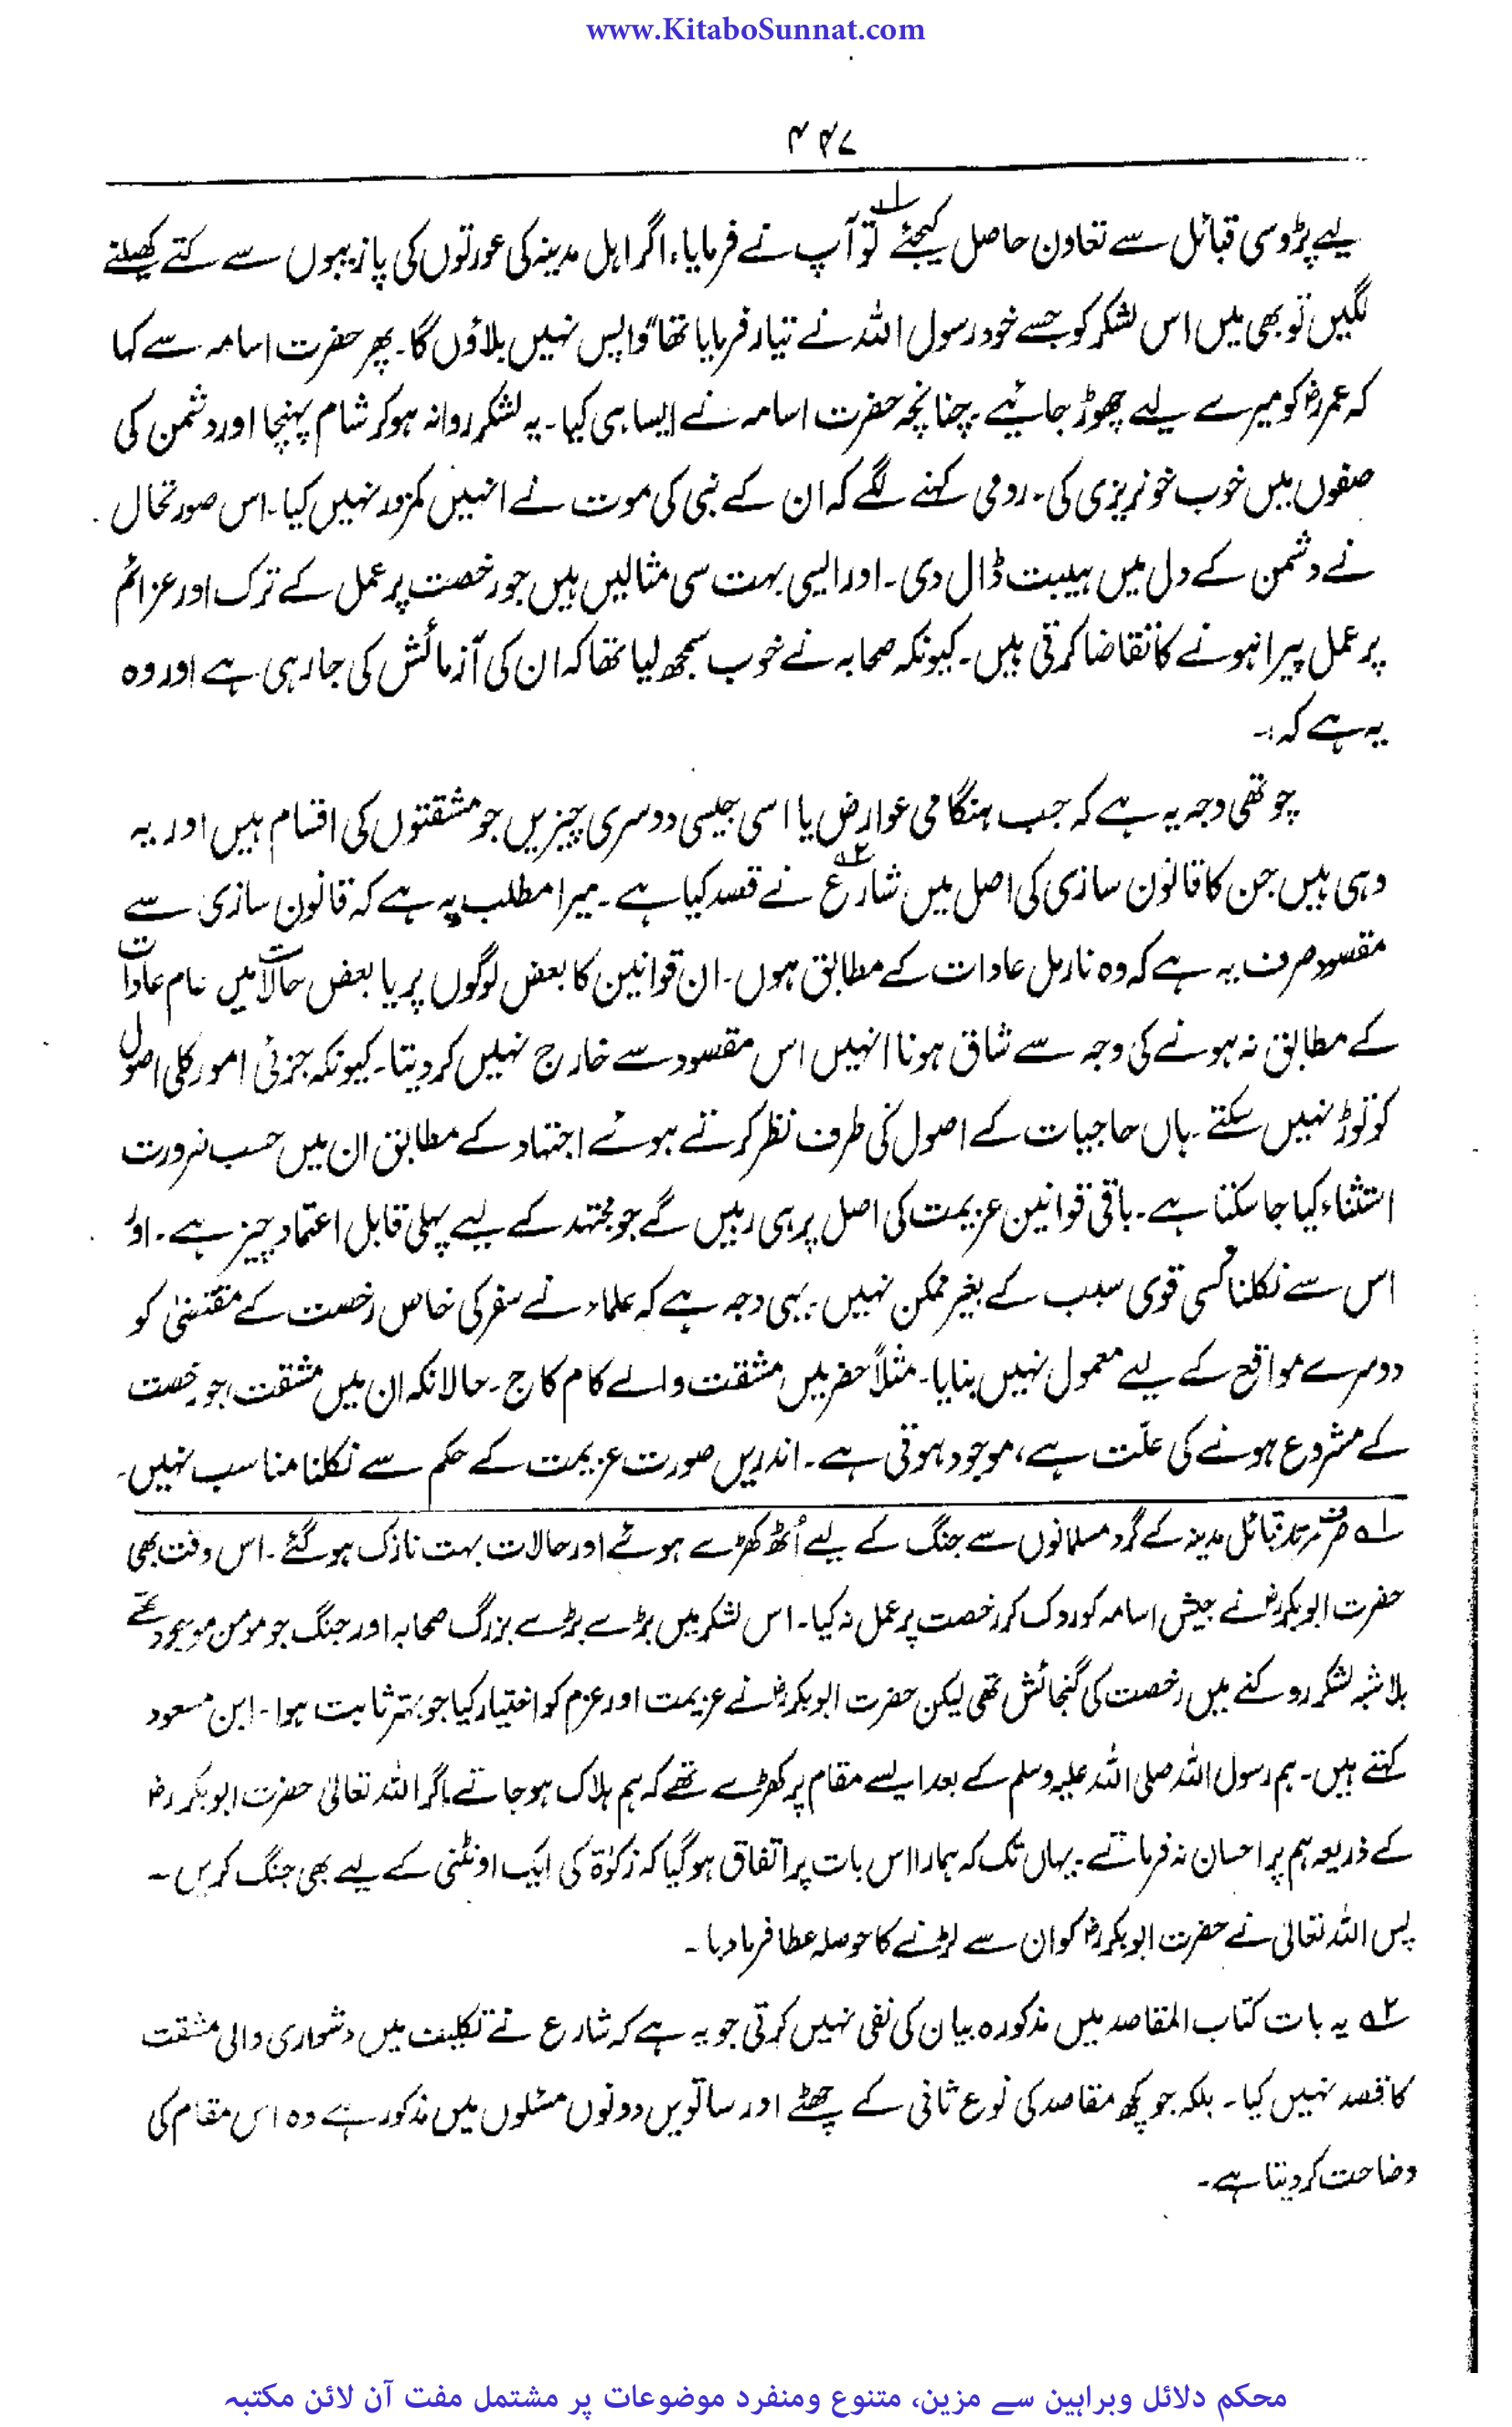 www.KitaboSunnat.com
۴۴۷
لیے پڑوسی قبائل سے تعاون حاصل کیجئے ؎۱ تو آپ نے فرمایا، اگر اہل مدینہ کی عورتوں کی پازیبوں سے کتے کھیلنے
لگیں تو بھی میں اس لشکر کو جسے خود رسول اللہ نے تیار فرمایا تھا، واپس نہیں بلاؤں گا۔ پھر حضرت اسامہ سے کہا
کہ عمرؓ کو میرے لیے چھوڑ جائیے۔ چنانچہ حضرت اسامہ نے ایسا ہی کیا۔ یہ لشکر روانہ ہو کر شام پہنچا اور دشمن کی
صفوں میں خوب خونریزی کی۔ رومی کہنے لگے کہ ان کے نبی کی موت نے انہیں کمزور نہیں کیا۔ اس صورتحال
نے دشمن کے دل میں ہیبت ڈال دی۔ اور ایسی بہت سی مثالیں ہیں جو رخصت پر عمل کے ترک اور عزائم
پر عمل پیرا ہونے کا تقاضا کرتی ہیں۔ کیونکہ صحابہ نے خوب سمجھ لیا تھا کہ ان کی آزمائش کی جا رہی ہے اور وہ
یہ ہے کہ :۔
چوتھی وجہ یہ ہے کہ جب ہنگامی عوارض یا اسی جیسی دوسری چیزیں جو مشقتوں کی اقسام ہیں اور یہ
وہی ہیں جن کا قانون سازی کی اصل میں شارع ؎۲ نے قصد کیا ہے۔ میرا مطلب یہ ہے کہ قانون سازی سے
مقصود صرف یہ ہے کہ وہ نارمل عادات کے مطابق ہوں۔ ان قوانین کا بعض لوگوں پر یا بعض حالات میں عام عادات
کے مطابق نہ ہونے کی وجہ سے شاق ہونا انہیں اس مقصود سے خارج نہیں کر دیتا۔ کیونکہ جزئی امور کلی اصول
کو توڑ نہیں سکتے۔ ہاں حاجیات کے اصول کی طرف نظر کرتے ہوئے اجتہاد کے مطابق ان میں حسب ضرورت
استثناء کیا جا سکتا ہے۔ باقی قوانین عزیمت کی اصل پر ہی رہیں گے جو مجتہد کے لیے پہلی قابل اعتماد چیز ہے۔ اور
اس سے نکلنا کسی قوی سبب کے بغیر ممکن نہیں۔ یہی وجہ ہے کہ علماء نے سفر کی خاص رخصت کے مقتضیٰ کو
دوسرے مواقع کے لیے معمول نہیں بنایا۔ مثلاً حضر میں مشقت والے کام کاج۔ حالانکہ ان میں مشقت، جو رخصت
کے مشروع ہونے کی علّت ہے، موجود ہوتی ہے۔ اندریں صورت عزیمت کے حکم سے نکلنا مناسب نہیں۔
؎۱ مرتد قبائل مدینہ کے گرد مسلمانوں سے جنگ کے لیے اُٹھ کھڑے ہوئے اور حالات بہت نازک ہو گئے۔ اس وقت بھی
حضرت ابوبکرؓ نے جیش اسامہ کو روک کر رخصت پر عمل نہ کیا۔ اس لشکر میں بڑے بڑے بزرگ صحابہ اور جنگ جو مومن موجود تھے
بلا شبہ لشکر روکنے میں رخصت کی گنجائش تھی لیکن حضرت ابوبکرؓ نے عزیمت اور عزم کو اختیار کیا جو بہتر ثابت ہوا۔ ابن مسعود
کہتے ہیں۔ ہم رسول اللہ صلی اللہ علیہ وسلم کے بعد ایسے مقام پر کھڑے تھے کہ ہم ہلاک ہو جاتے اگر اللہ تعالیٰ حضرت ابوبکرؓ
کے ذریعہ ہم پر احسان نہ فرماتے۔ یہاں تک کہ ہمارا اس بات پر اتفاق ہو گیا کہ زکوٰۃ کی ایک اونٹنی کے لیے بھی جنگ کریں۔
پس اللہ تعالیٰ نے حضرت ابوبکرؓ کو ان سے لڑنے کا حوصلہ عطا فرما دیا۔
؎۲ یہ بات کتاب المقاصد میں مذکورہ بیان کی نفی نہیں کرتی جو یہ ہے کہ شارع نے تکلیف میں دشواری والی مشقت
کا قصد نہیں کیا۔ بلکہ جو کچھ مقاصد کی نوع ثانی کے چھٹے اور ساتویں دونوں مسئلوں میں مذکور ہے وہ اس مقام کی
وضاحت کر دیتا ہے۔
محکم دلائل وبراہین سے مزین، متنوع ومنفرد موضوعات پر مشتمل مفت آن لائن مکتبہ